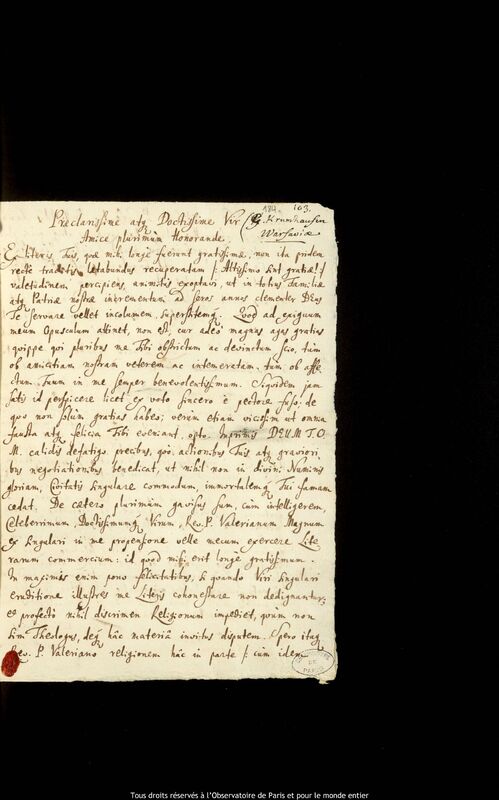 184. 103.
Præclarissime atq Doctissime Vir (G. Krumhausen
Amice plurimum Honorande Warsaviæ
Ex literis Tuis, quæ mihi longè fuerunt gratissimæ, non ita pridem
rectè traditis lætabundus recuperatam /: Altissimo sint gratiæ! :/
valetudinem percipiens, animitus exoptavi, ut in totius Familiæ
atq Patriæ nostræ incrementum ad seros annos clementer DEus
Te servare vellet incolumem, superstitemq. Quod ad exiguum
meum Opusculum attinet, non est, cur adeò magnas agas gratias
quippe qui pluribus me Tibi obstrictum ac devinctum scio, tùm
ob amicitiam nostram veterem ac intemeratam, tùm ob affe
ctum Tuum in me semper benevolentissimum. Siquidem jam
satis id perspicere licet ex voto sincero è pectore fuso, de
quo non solùm gratias habeo; verùm etiam vicissim ut omnia
fausta atq felicia Tibi eveniant, opto. Inprimis DEUM T.O.
M. calidis defatigo precibus, quò actionibus Tuis atq graviori
bus negotiationibus benedicat, ut nihil non in divini Numinis
gloriam, Civitatis singulare commodum, immortalemq Tui famam
cedat. De cætero plurimùm gavisus sum, cùm intelligerem,
Celeberrimum, Doctissimumq Virum, Rev. P. Valerianum Magnum
ex singulari in me propensione velle mecum exercere Lite
rarum commercium: id quod mihi erit longè gratissimum.
In maximis enim pono felicitatibus, si quando Viri singulari
eruditione illustres me Literis cohonestare non dedignantur;
et profectò nihil discrimen Religionum impediet, quùm non
sim Theologus, deq hâc materiâ invitus disputem. Spero itaq
Rev. P. Valeriano religionem hâc in parte /: cùm idem
OBSERVATOIRE DE PARIS
Tous droits réservés à l'Observatoire de Paris et pour le monde entier